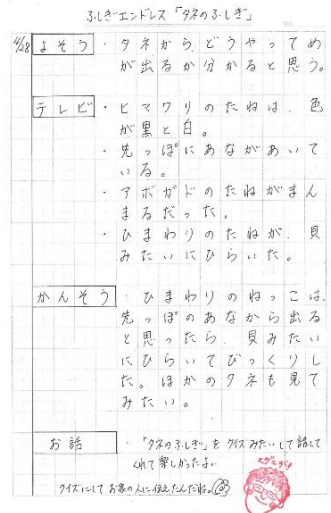 ふしぎエンドレス「タネのふしぎ」
4/28 よそう ・タネから、どうやってめ
が出るか分かると思う。
テレビ ・ヒマワリのたねは、色
が黒と白。
・先っぽにあながあいて
いる。
・アボガドのたねがまん
まるだった。
・ひまわりのたねが、貝
みたいにひらいた。
かんそう ・ひまわりのねっこは、
先っぽのあなから出る
と思ったら、貝みたい
にひらいてびっくりし
た。ほかのタネも見て
みたい。
お話 ・「タネのふしぎ」をクイズみたいして話して
くれて楽しかったよ。
クイズにしてお家の人に伝えたんだね。